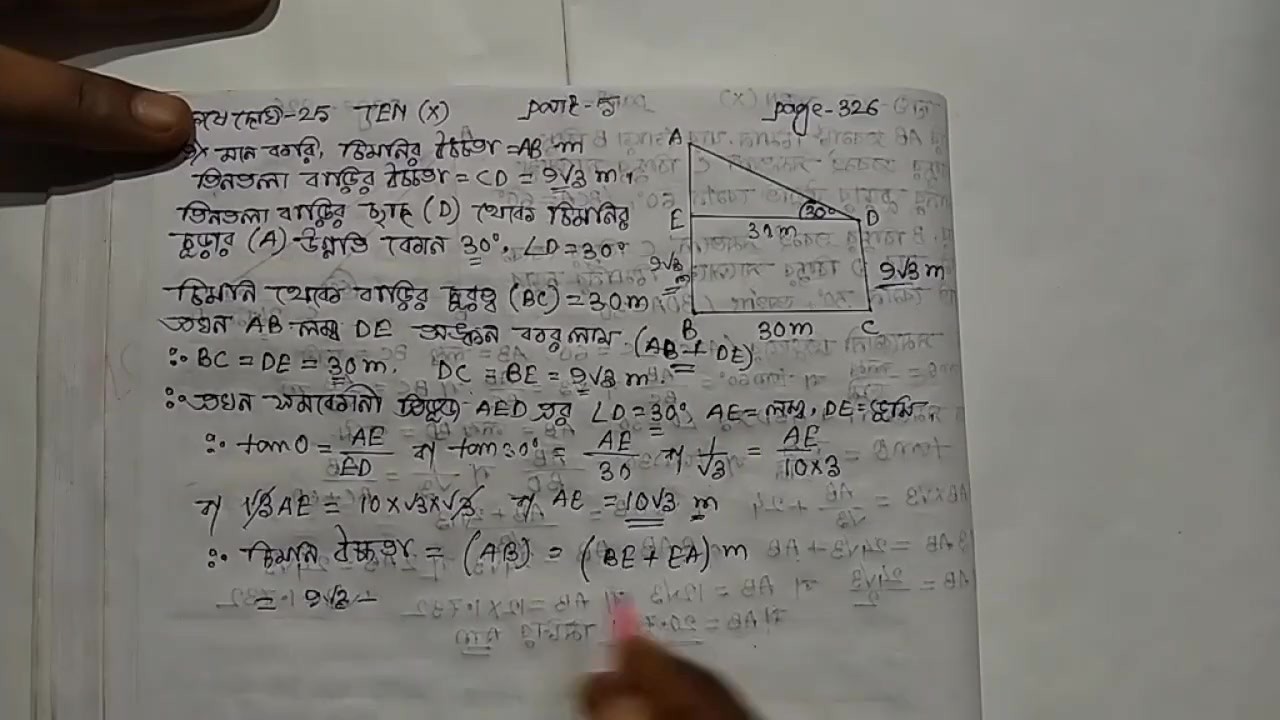 কষে দেখি-25 TEN (X) part-5 page-326
মনে করি, চিমনির উচ্চতা = AB m
তিনতলা বাড়ির উচ্চতা = CD = 9√3 m,
তিনতলা বাড়ির ছাদ (D) থেকে চিমনির
চূড়ার (A) উন্নতি কোন 30°. ∠D = 30°
চিমনি থেকে বাড়ির দূরত্ব (BC) = 30m
তখন AB লম্ব DE অঙ্কন করলাম. (AB ⊥ DE)
∴ BC = DE = 30 m. DC = BE = 9√3 m.
∴ তখন সমকোনী ত্রিভুজ AED এর ∠D = 30°, AE = লম্ব, DE = ভূমি
∴ tanθ = AE/ED বা tan30° = AE/30 বা 1/√3 = AE/10×3
বা √3AE = 10×√3×√3 বা AE = 10√3 m
∴ চিমনি উচ্চতা = (AB) = (BE + EA) m
= 9√3 +
A
E
30°
D
30m
9√3 m
9√3 m
B
30m
C